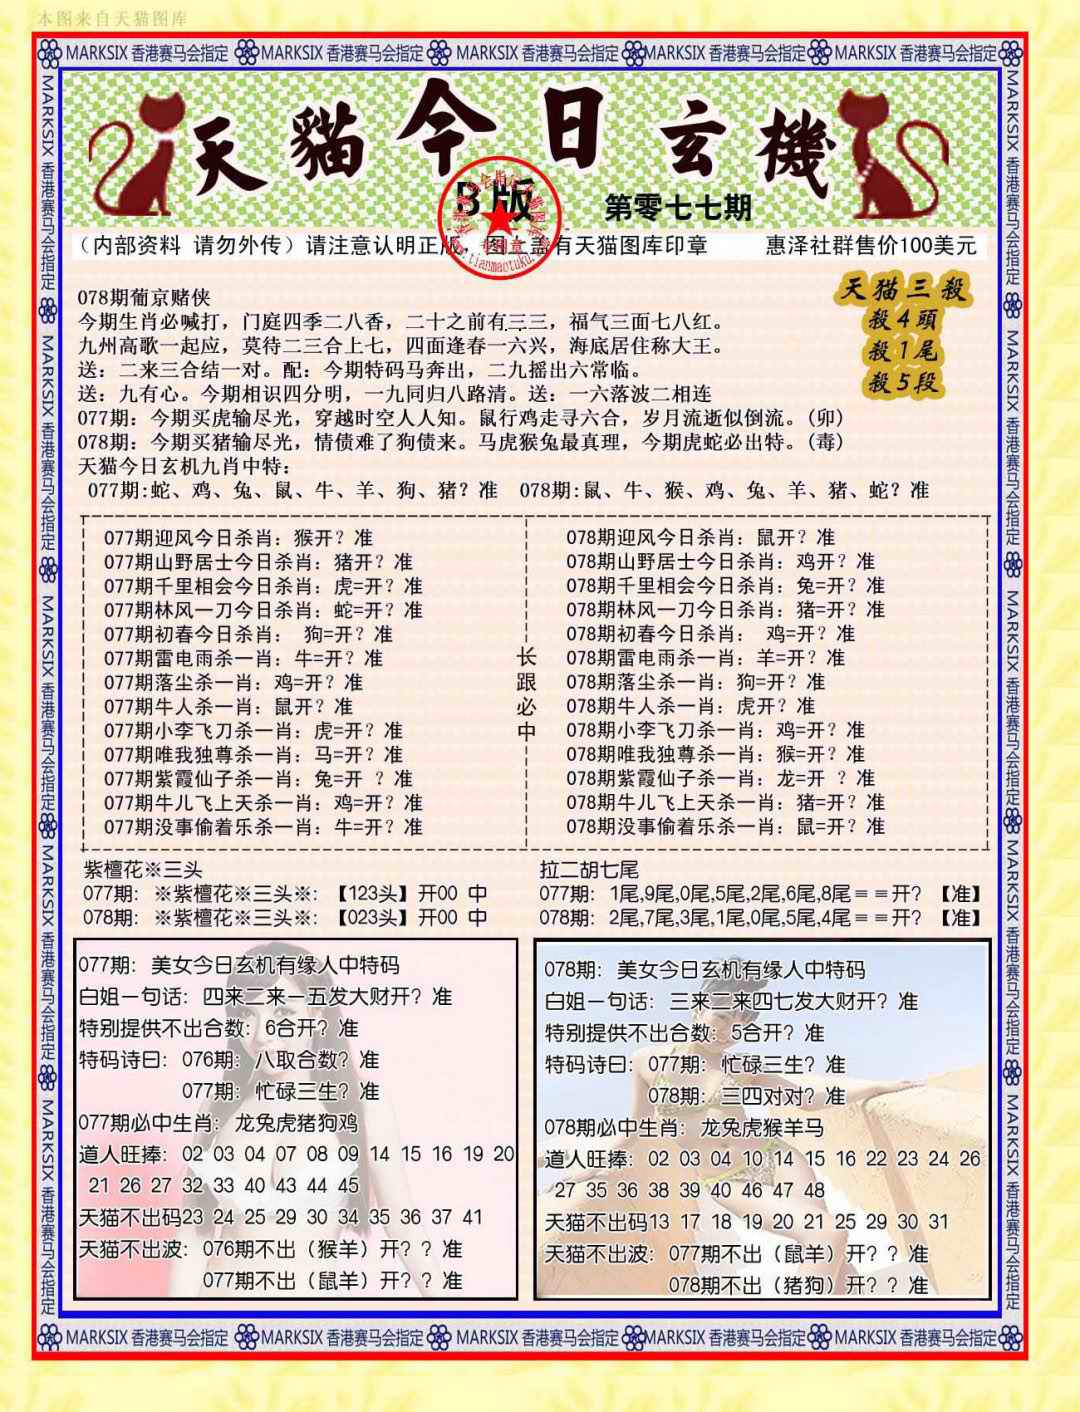 本图来自天猫图库
MARKSIX 香港赛马会指定 MARKSIX 香港赛马会指定 MARKSIX 香港赛马会指定 MARKSIX 香港赛马会指定 MARKSIX 香港赛马会指定
天貓今日玄機
B版
第零七七期
（内部资料 请勿外传）请注意认明正版，图上盖有天猫图库印章 惠泽社群售价100美元
天猫三殺
殺4頭
殺1尾
殺5段
078期葡京赌侠
今期生肖必喊打，门庭四季二八香，二十之前有三三，福气三面七八红。
九州高歌一起应，莫待二三合上七，四面逢春一六兴，海底居住称大王。
送：二来三合结一对。配：今期特码马奔出，二九摇出六常临。
送：九有心。今期相识四分明，一九同归八路清。送：一六落波二相连
077期：今期买虎输尽光，穿越时空人人知。鼠行鸡走寻六合，岁月流逝似倒流。（卯）
078期：今期买猪输尽光，情债难了狗债来。马虎猴兔最真理，今期虎蛇必出特。（毒）
天猫今日玄机九肖中特：
077期:蛇、鸡、兔、鼠、牛、羊、狗、猪？准 078期:鼠、牛、猴、鸡、兔、羊、猪、蛇？准
077期迎风今日杀肖：猴开？准
077期山野居士今日杀肖：猪开？准
077期千里相会今日杀肖：虎=开？准
077期林风一刀今日杀肖：蛇=开？准
077期初春今日杀肖： 狗=开？准
077期雷电雨杀一肖：牛=开？准
077期落尘杀一肖：鸡=开？准
077期牛人杀一肖：鼠开？准
077期小李飞刀杀一肖：虎=开？准
077期唯我独尊杀一肖：马=开？准
077期紫霞仙子杀一肖：兔=开 ？准
077期牛儿飞上天杀一肖：鸡=开？准
077期没事偷着乐杀一肖：牛=开？准
长跟必中
078期迎风今日杀肖：鼠开？准
078期山野居士今日杀肖：鸡开？准
078期千里相会今日杀肖：兔=开？准
078期林风一刀今日杀肖：猪=开？准
078期初春今日杀肖： 鸡=开？准
078期雷电雨杀一肖：羊=开？准
078期落尘杀一肖：狗=开？准
078期牛人杀一肖：虎开？准
078期小李飞刀杀一肖：鸡=开？准
078期唯我独尊杀一肖：猴=开？准
078期紫霞仙子杀一肖：龙=开 ？准
078期牛儿飞上天杀一肖：猪=开？准
078期没事偷着乐杀一肖：鼠=开？准
紫檀花※三头
077期：※紫檀花※三头※：【123头】开00 中
078期：※紫檀花※三头※：【023头】开00 中
拉二胡七尾
077期：1尾,9尾,0尾,5尾,2尾,6尾,8尾＝＝开？【准】
078期：2尾,7尾,3尾,1尾,0尾,5尾,4尾＝＝开？【准】
077期：美女今日玄机有缘人中特码
白姐一句话：四来二来一五发大财开？准
特别提供不出合数：6合开？准
特码诗曰：076期：八取合数？准
077期：忙碌三生？准
077期必中生肖：龙兔虎猪狗鸡
道人旺捧：02 03 04 07 08 09 14 15 16 19 20
21 26 27 32 33 40 43 44 45
天猫不出码23 24 25 29 30 34 35 36 37 41
天猫不出波：076期不出（猴羊）开？？准
077期不出（鼠羊）开？？准
078期：美女今日玄机有缘人中特码
白姐一句话：三来二来四七发大财开？准
特别提供不出合数：5合开？准
特码诗曰：077期：忙碌三生？准
078期：三四对对？准
078期必中生肖：龙兔虎猴羊马
道人旺捧：02 03 04 10 14 15 16 22 23 24 26
27 35 36 38 39 40 46 47 48
天猫不出码13 17 18 19 20 21 25 29 30 31
天猫不出波：077期不出（鼠羊）开？？准
078期不出（猪狗）开？？准
MARKSIX 香港赛马会指定 MARKSIX 香港赛马会指定 MARKSIX 香港赛马会指定 MARKSIX 香港赛马会指定 MARKSIX 香港赛马会指定
MARKSIX 香港赛马会指定 MARKSIX 香港赛马会指定 MARKSIX 香港赛马会指定 MARKSIX 香港赛马会指定 MARKSIX 香港赛马会指定
MARKSIX 香港赛马会指定 MARKSIX 香港赛马会指定 MARKSIX 香港赛马会指定 MARKSIX 香港赛马会指定 MARKSIX 香港赛马会指定